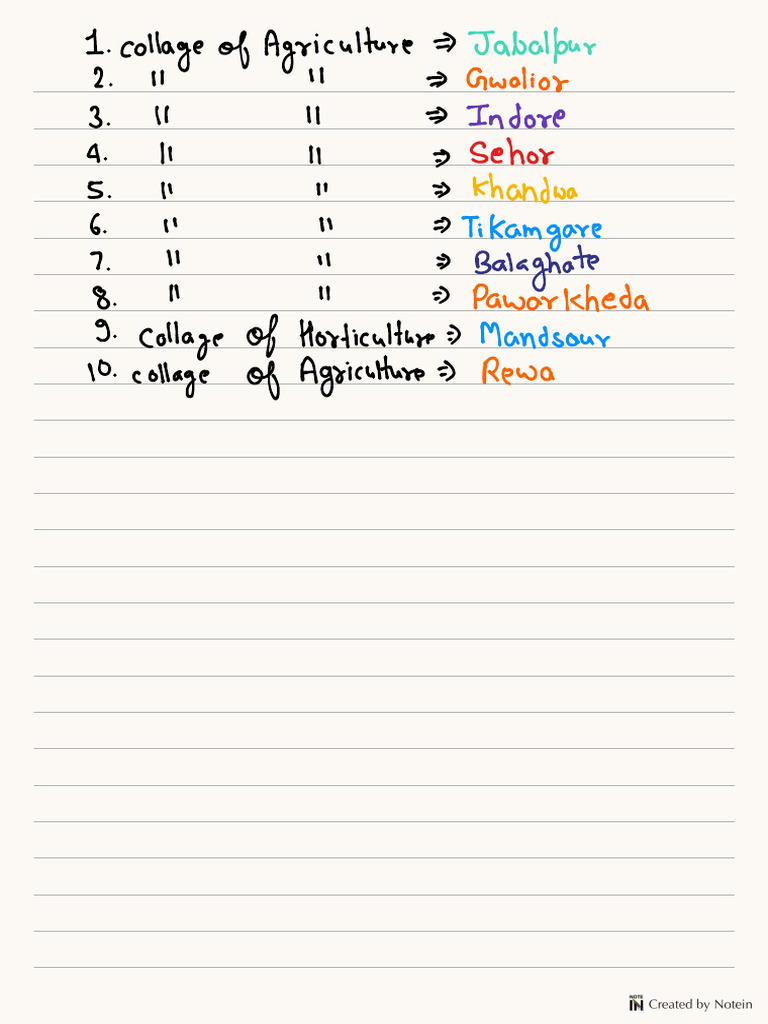 1. Collage of Agriculture ⇒ Jabalpur
2. " " ⇒ Gwalior
3. " " ⇒ Indore
4. " " ⇒ Sehor
5. " " ⇒ Khandwa
6. " " ⇒ Tikamgare
7. " " ⇒ Balaghate
8. " " ⇒ Pawarkheda
9. Collage of Horticulture ⇒ Mandsour
10. collage of Agriculture ⇒ Rewa
NOTE IN Created by Notein